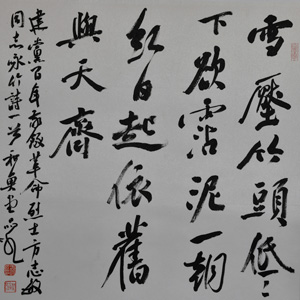 雪壓竹頭低低
下欲霑泥一朝
紅日起依舊
與天齊
建黨百年敬錄革命烈士方志敏
同志詠竹詩一首